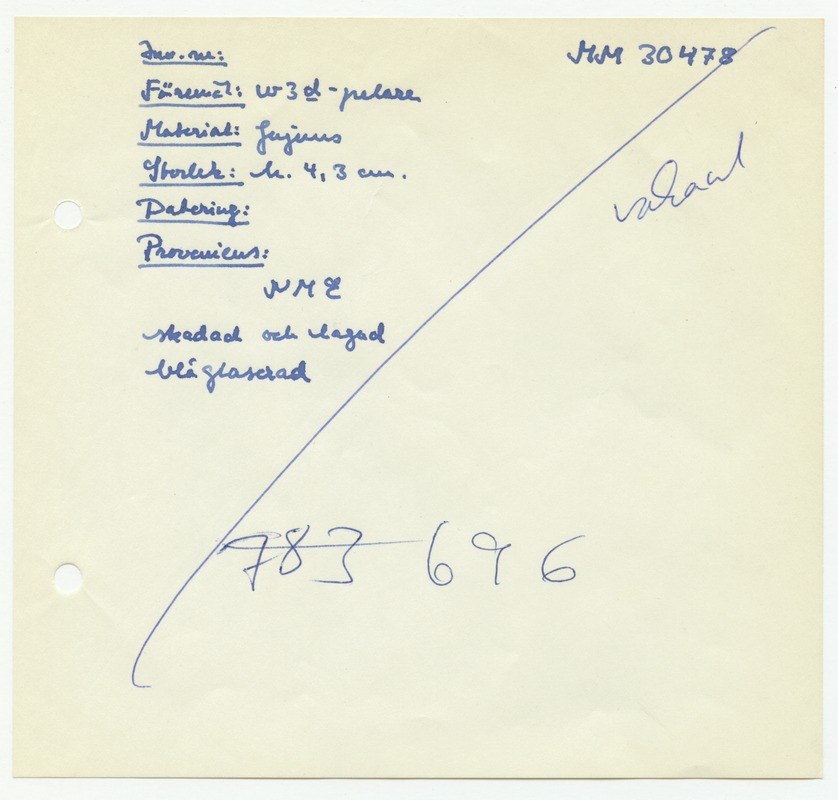 Inv.nr: MM 30478
Föremål: w3d-pelare
vakant
Material: fajans
Storlek: h. 4,3 cm.
Datering:
Proveniens:
NME
skadad och lagad
blåglaserad
783 696